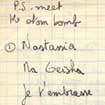 P.S. meet
the atom bomb
① Nastasia
Na Geisha
je t'embrasse